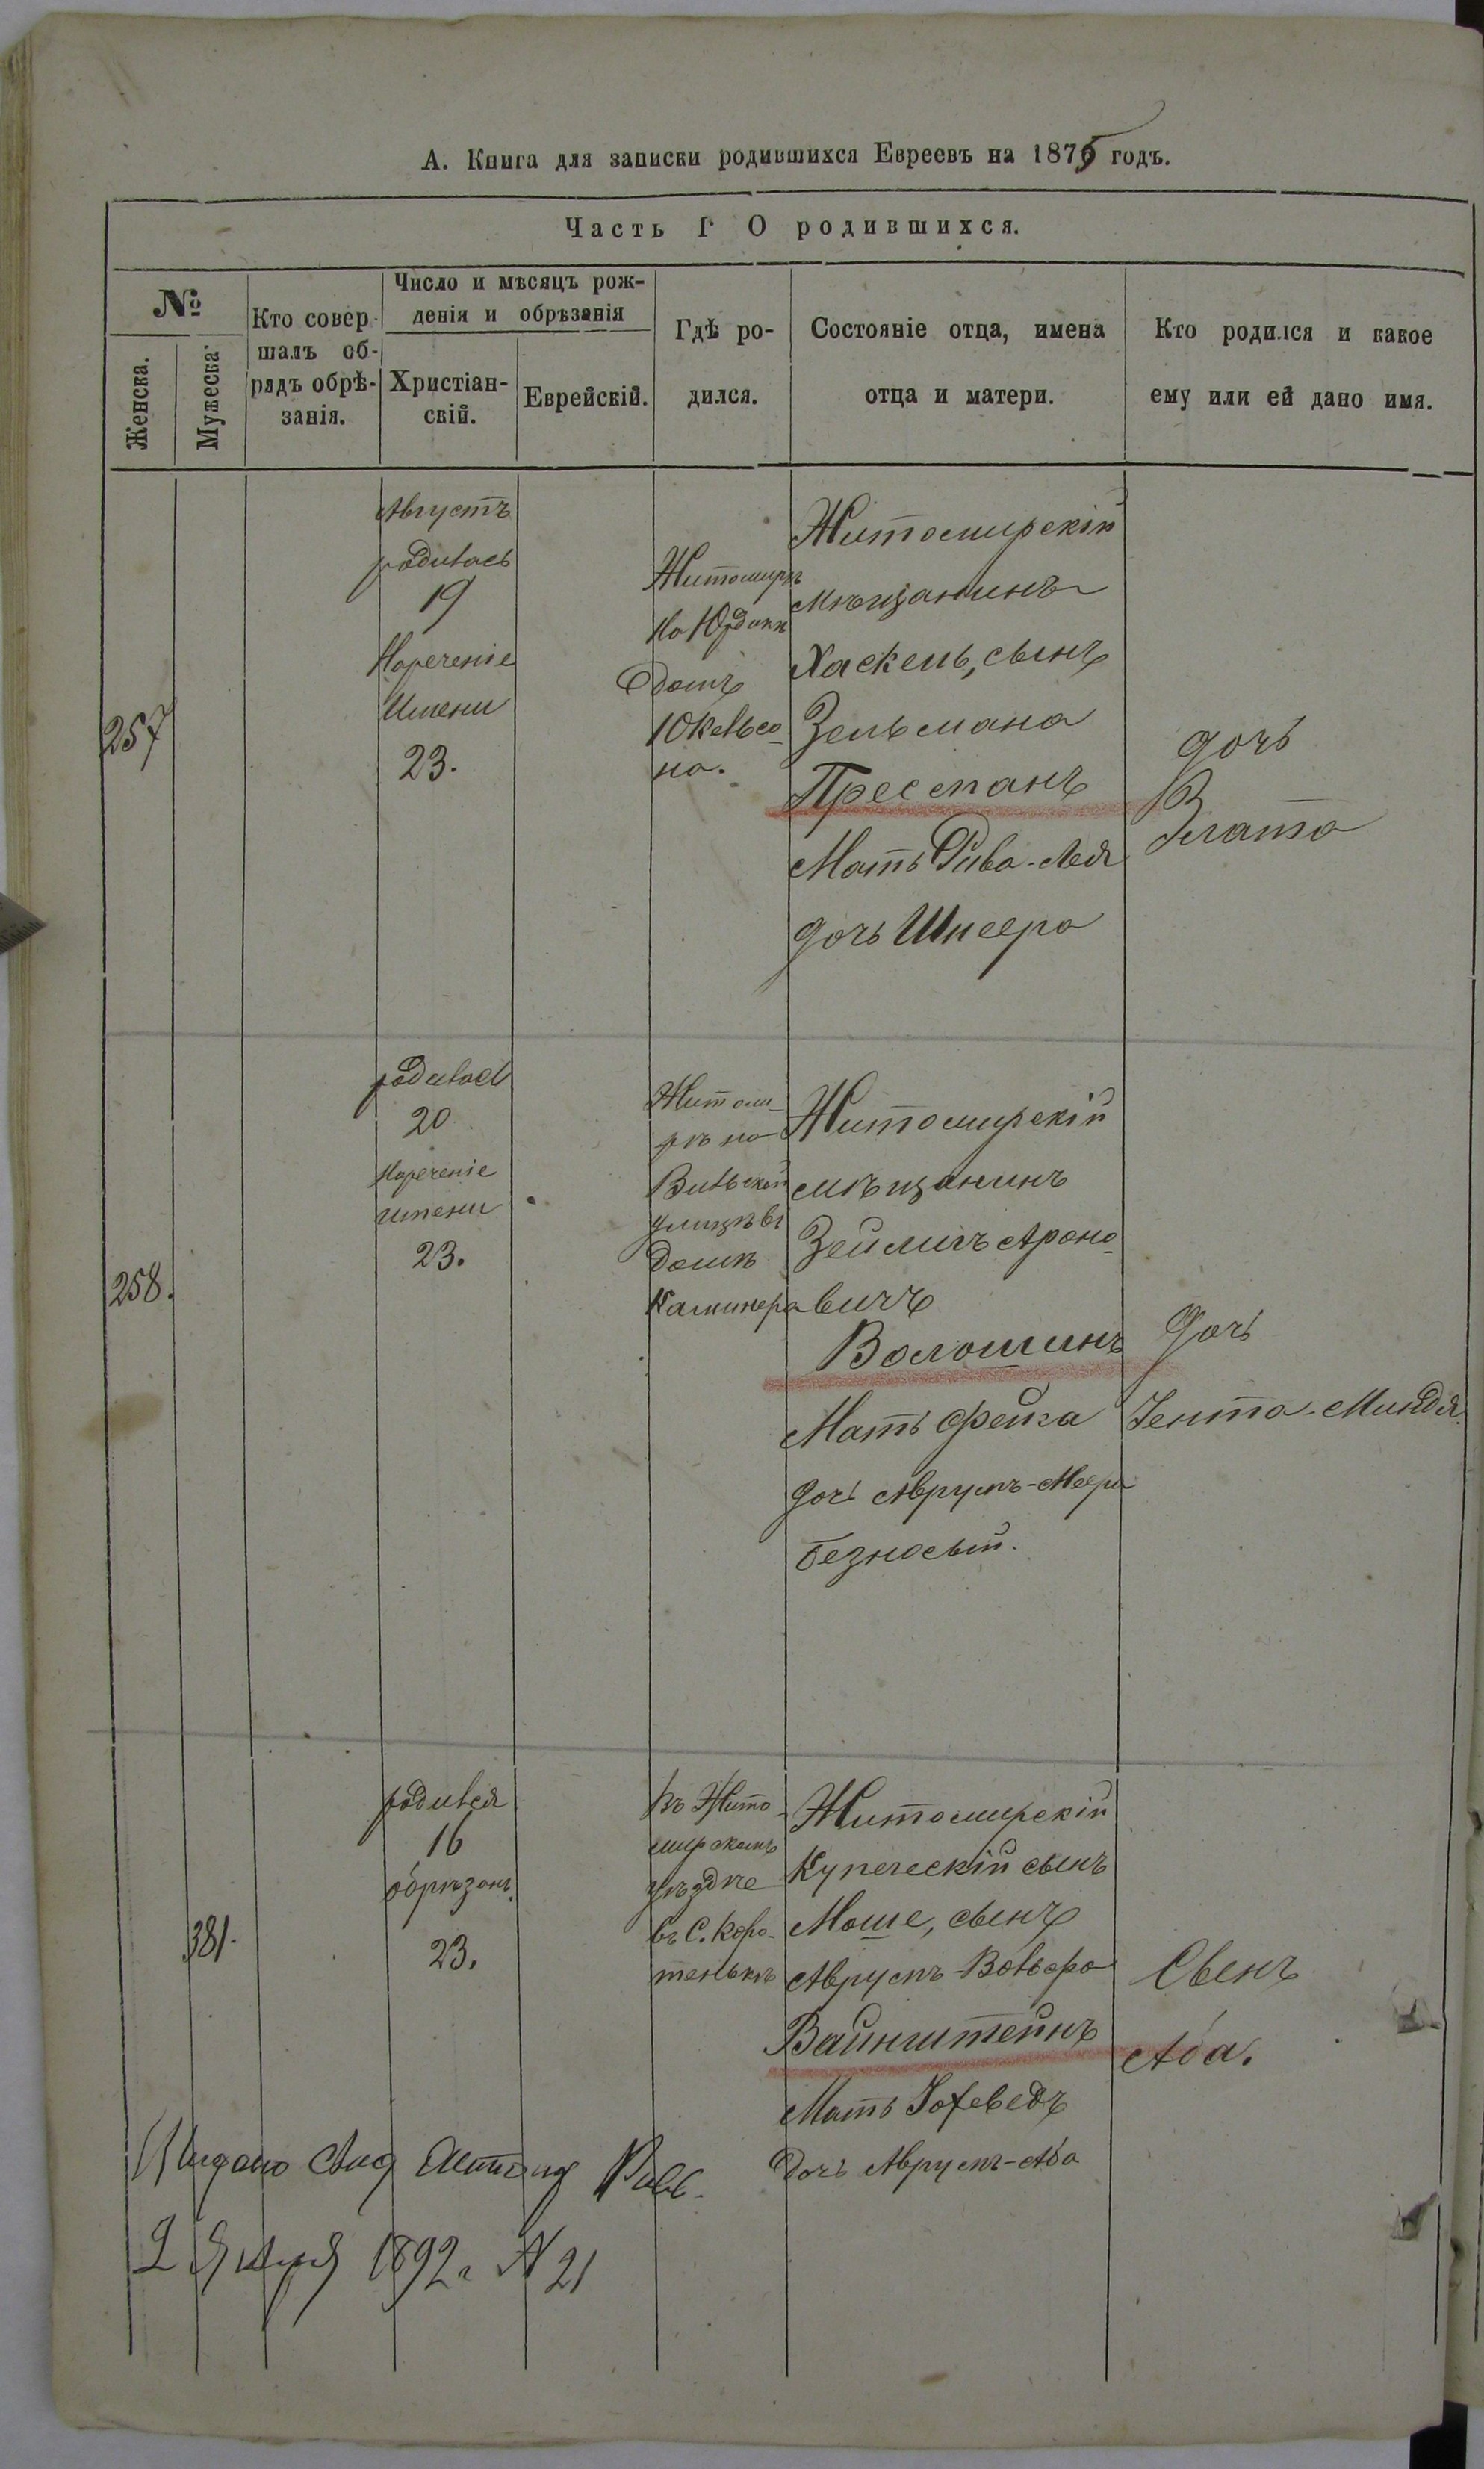 А. Книга для записки родившихся Евреевъ на 1875 годъ.
Часть I О родившихся.
№
Женска.
Мужеска
Кто совер-
шалъ об-
рядъ обрѣ-
занія.
Число и мѣсяцъ рож-
денія и обрѣзанія
Христіан-
скій.
Еврейскій.
Гдѣ ро-
дился.
Состояніе отца, имена
отца и матери.
Кто родился и какое
ему или ей дано имя.
257
Августъ
родилась
19
Нареченіе
Имени
23.
Житомирѣ
на
домъ
Юкельсо-
на.
Житомирскій
мѣщанинъ
Хаскель, сынъ
Зельмана
Пресманъ
Мать Рива-Лея
дочь Шнеера
дочь
Злата
258.
родилась
20
Нареченіе
имени
23.
Житоми-
рѣ на
Вильской
улицѣ въ
домѣ
Каминера
Житомирскій
мѣщанинъ
Зейлигъ Ароно-
вичъ
Волошинъ
Мать Фейга
дочь Аврумъ-Меера
Безносый.
Дочь
Ента-Миндля
381.
родился
16
обрѣзанъ
23.
въ Жито-
мирскомъ
уѣздѣ
въ С. Коро-
тенькѣ
Житомирскій
Купеческій сынъ
Моше, сынъ
Аврумъ-Вольфа
Вайнштейнъ
Мать Іохеведъ
дочь Аврумъ-Аба
Сынъ
Аба.
Выдано
2 Января 1892 г. N 21